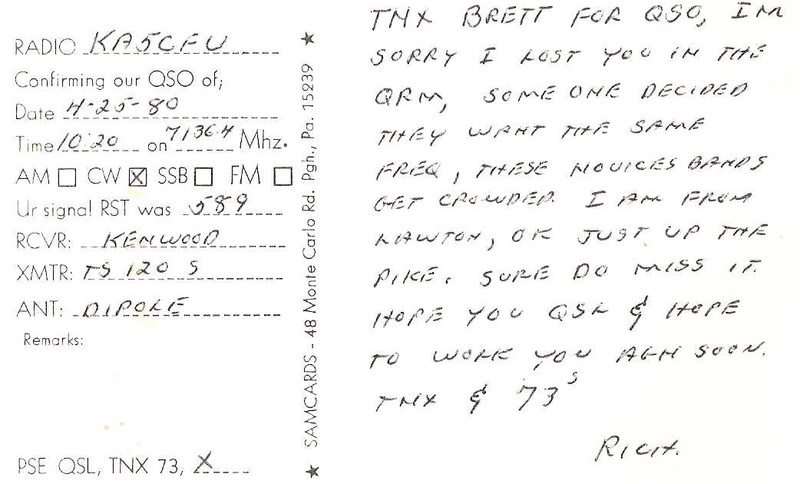 RADIO KA5CFU
Confirming our QSO of;
Date 4-25-80
Time 10:20 on 7136.4 Mhz.
AM ☐ CW ☒ SSB ☐ FM ☐
Ur signal RST was 589
RCVR: KENWOOD
XMTR: TS 120 S
ANT: DIPOLE
Remarks:
PSE QSL, TNX 73, X
★ SAMCARDS - 48 Monte Carlo Rd. Pgh., Pa. 15239 ★
TNX BRETT FOR QSO, IM
SORRY I LOST YOU IN THE
QRM, SOMEONE DECIDED
THEY WANT THE SAME
FREQ, THESE NOVICES BANDS
GET CROWDED. I AM FROM
LAWTON, OK JUST UP THE
PIKE. SURE DO MISS IT.
HOPE YOU QSL & HOPE
TO WORK YOU AGN SOON.
TNX & 73s
RICH.